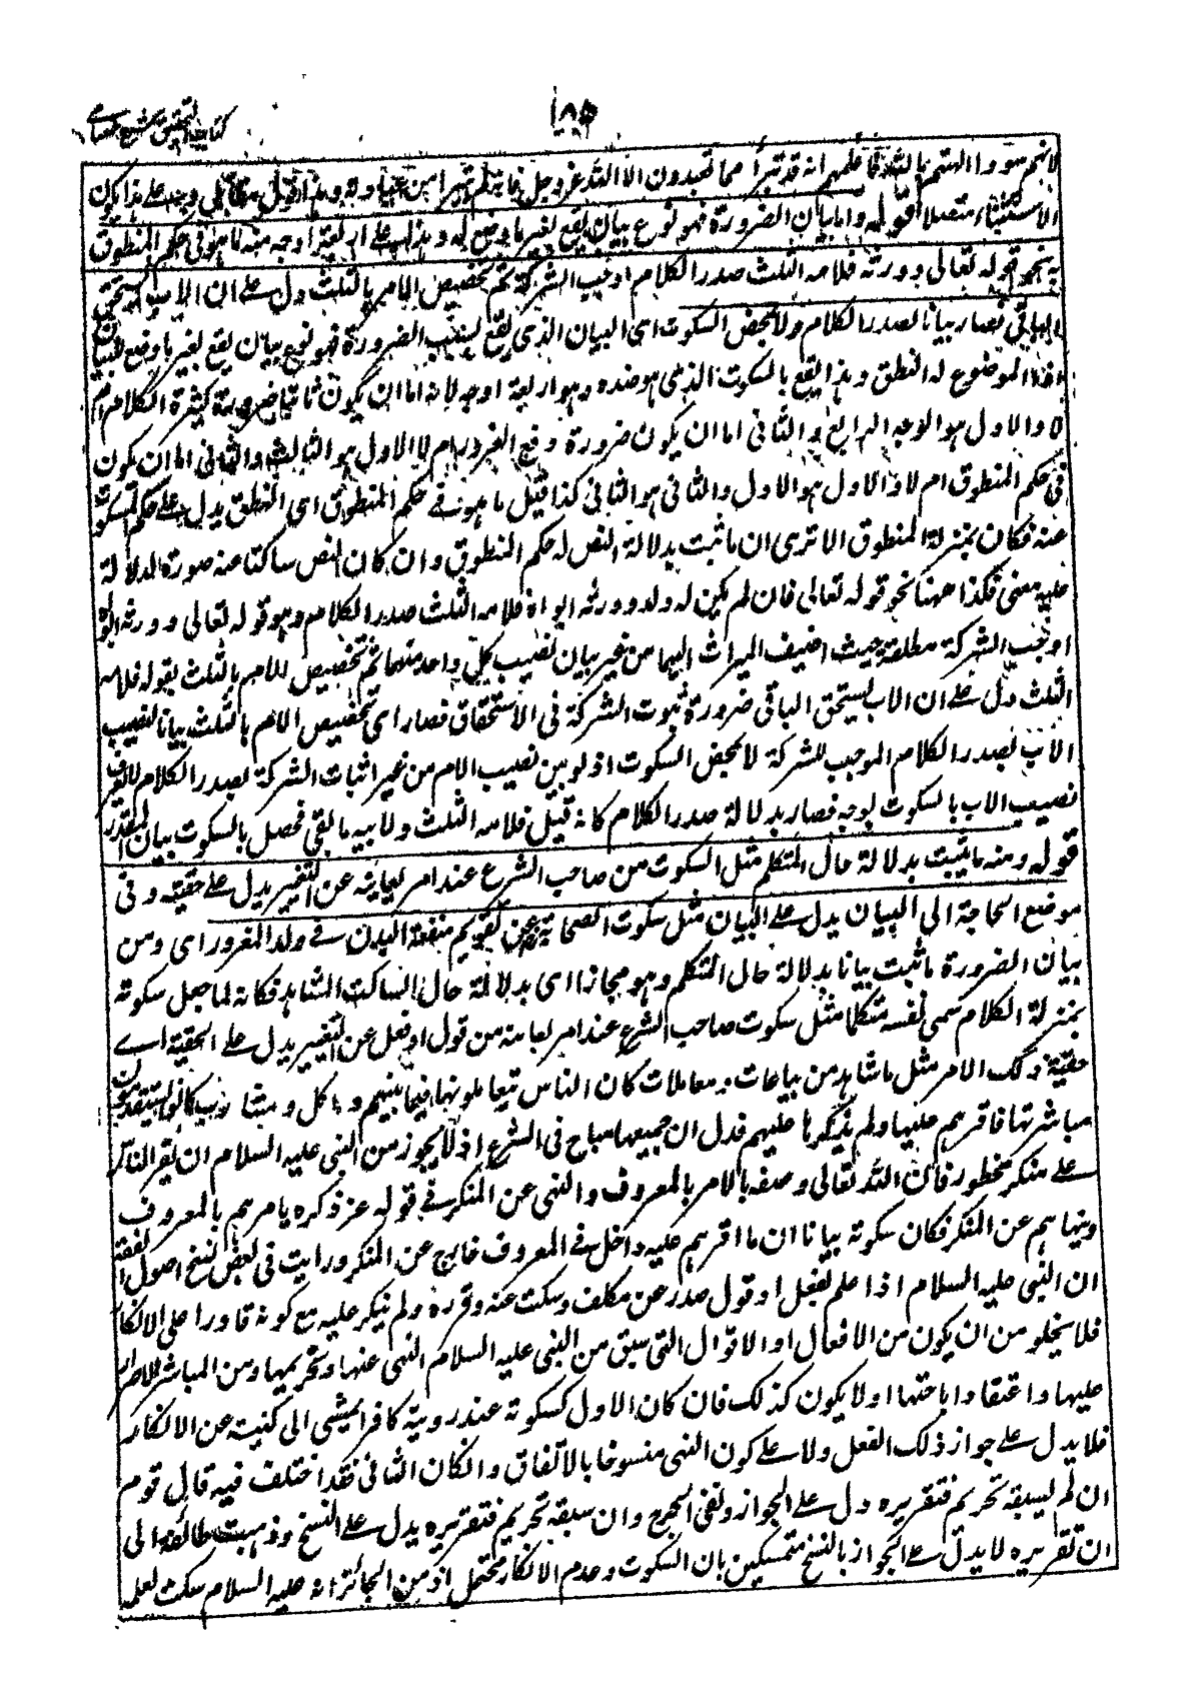 ١٨٥
كتاب التحقيق شرح حسامي
لانهم سووا الهتهم بالله فاعلمهم انه قد تبرأ مما تعبدون الا الله عز وجل فانه لم يتبرأ من عبادته وهذا قول مقاتل وعلى هذا يكون
الاستثناء متصلا قوله واما بيان الضرورة فهو نوع بيان يقع بغير ما وضع له وهذا على اربعة اوجه منه ما هو في حكم المنطوق
به نحو قوله تعالى وورثه فلامه الثلث صدر الكلام اوجب الشركة ثم تخصيص الام بالثلث دل على ان الاب يستحق
الباقي فصار بيانا لصدر الكلام لا بمحض السكوت اى البيان الذى يقع بسبب الضرورة فهو نوع بيان يقع بغير ما وضع للبيان
اذ الموضوع له النطق وهذا يقع بالسكوت الذى هو ضده وهو اربعة اوجه لانه اما ان يكون ثابتا ضرورة كثرة الكلام ام
لا والاول هو الوجه الرابع والثانى اما ان يكون ضرورة دفع الغرور ام لا الاول هو الثالث والثانى اما ان يكون
فى حكم المنطوق ام لا فالاول هو الاول والثانى هو الثانى كذا قيل ما هو فى حكم المنطوق اى النطق يدل على حكم المسكوت
عنه فكان بمنزلة المنطوق الا ترى ان ما ثبت بدلالة النص له حكم المنطوق وان كان النص ساكتا عنه صورة لدلالة
عليه معنى فكذا ههنا نحو قوله تعالى فان لم يكن له ولد وورثه ابواه فلامه الثلث صدر الكلام وهو قوله تعالى وورثه ابواه
اوجب الشركة مطلقة حيث اضيف الميراث اليهما من غير بيان نصيب كل واحد منهما ثم تخصيص الام بالثلث بقوله فلامه
الثلث دل على ان الاب يستحق الباقى ضرورة ثبوت الشركة فى الاستحقاق فصار اى تخصيص الام بالثلث بيانا لنصيب
الاب لصدر الكلام الموجب للشركة لا بمحض السكوت اذ لو بين نصيب الام من غير اثبات الشركة لصدر الكلام لا يعرف
نصيب الاب بالسكوت بوجه فصار بدلالة صدر الكلام كانه قيل فلامه الثلث ولابيه ما بقى فحصل بالسكوت بيان المقدار
قوله ومنه ما يثبت بدلالة حال المتكلم مثل السكوت من صاحب الشرع عند امر يعاينه عن التغيير يدل على حقيته وفى
موضع الحاجة الى البيان يدل على البيان مثل سكوت الصحابة عن تقويم منفعة البدن فى ولد المغرور اى ومن
بيان الضرورة ما ثبت بيانا بدلالة حال المتكلم وهو مجاز اى بدلالة حال الساكت المشاهد فكانه لما جعل سكوته
بمنزلة الكلام سمى نفسه متكلما مثل سكوت صاحب الشرع عند امر يعاينه من قول او فعل عن التغيير يدل على الحقية اى
حقية ذلك الامر مثل ما شاهد من بياعات ومعاملات كان الناس يتعاملونها فيما بينهم وماكل ومشارب كانوا يستقيدون
مباشرتها فاقرهم عليها ولم ينكرها عليهم فدل ان جميعها مباح فى الشرع اذ لا يجوز من النبى عليه السلام ان يقر الناس
على منكر محظور فان الله تعالى وصفه بالامر بالمعروف والنهى عن المنكر فى قوله عز ذكره يامرهم بالمعروف
وينهاهم عن المنكر فكان سكوته بيانا ان ما اقرهم عليه داخل فى المعروف خارج عن المنكر ورايت فى بعض نسخ اصول الفقه
ان النبى عليه السلام اذا علم بفعل او قول صدر عن مكلف وسكت عنه وقرره ولم ينكر عليه مع كونه قادرا على الانكار
فلا يخلو من ان يكون من الافعال او الاقوال التى سبق من النبى عليه السلام النهى عنها وتحريمها ومن المباشر الاصرار
عليها واعتقاد اباحتها او لا يكون كذلك فان كان الاول كسكوته عند رؤية كافر يمشى الى كنيسة عن الانكار
فلا يدل على جواز ذلك الفعل ولا على كون النهى منسوخا بالاتفاق وان كان الثانى فقد اختلف فيه قال قوم
ان لم يسبقه تحريم فتقريره دل على الجواز ونفى الحرج وان سبقه تحريم فتقريره يدل على النسخ وذهبت طائفة الى
ان تقريره لا يدل على الجواز بالنسخ متمسكين بان السكوت وعدم الانكار محتمل اذ من الجائز انه عليه السلام سكت لعلمه